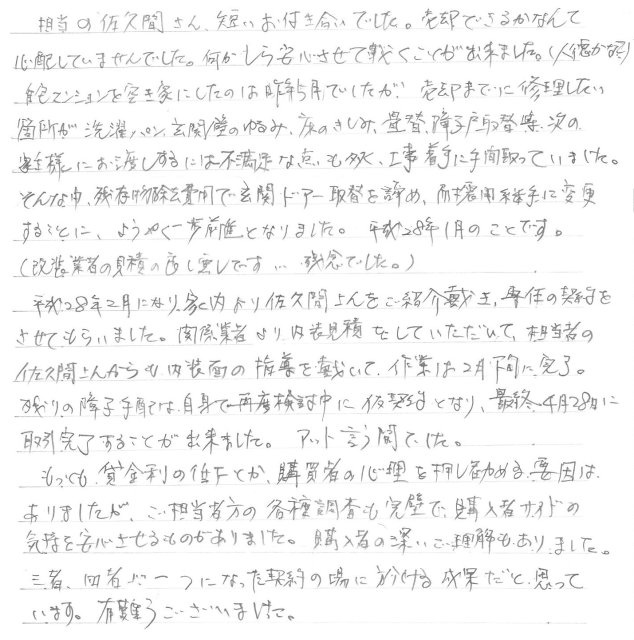 担当の佐久間さん、短いお付き合いでした。売却できるかなんて
心配していませんでした。何かしら安心させて戴くことが出来ました。(人徳かな?)
自宅マンションを空き家にしたのは昨年5月でしたが、売却までに修理したい
箇所が洗濯パン、玄関壁のゆるみ、床のきしみ、畳替、障子戸取替等、次の
お客様にお渡しするには不満足な点も多く、工事着手に手間取っていました。
そんな中、残存物除去費用で玄関ドアー取替を諦め、内装関係着手に変更
することに、ようやく一歩前進となりました。 平成28年1月のことです。
(改装業者の見積の底し無しです… 残念でした。)
平成28年2月になり、家内より佐久間さんをご紹介戴き、専任の契約を
させてもらいました。関係業者より、内装見積をしていただいて、担当者の
佐久間さんからも内装面の指導を戴いて、作業は2月下旬に完了。
残りの障子手配は、自身で再度検討中に仮契約となり、最終、4月28日に
取引完了することが出来ました。 アット言う間でした。
もっとも、貸金利の低下とか、購買者の心理を押し勧める要因は、
ありましたが、ご担当者方の各種調査も完璧で、購入者サイドの
気持を安心させるものがありました。購入者の深いご理解もありました。
三者、四者が一つになった契約の場に於ける成果だと思って
います。有難うございました。